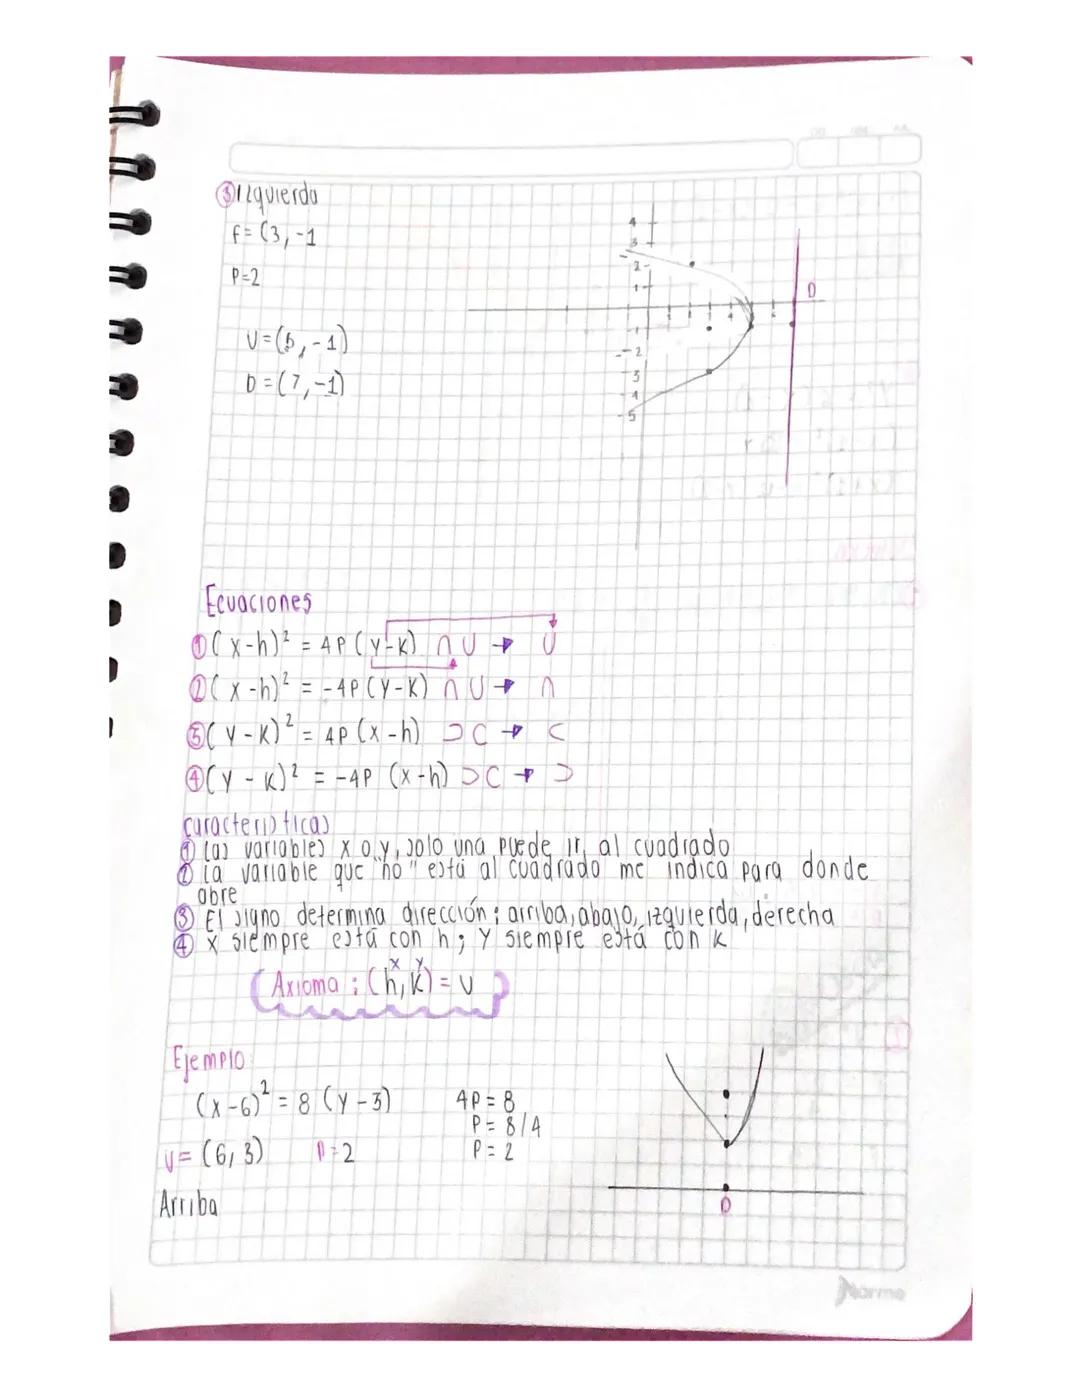 ③ Izquierda
f= (3, -1
P=2
V=(5, -1)
D=(7, -1)
4
3
2
1
4
-1
-2
3
4
-5
D
Ecuaciones
① (x-h)² = 4P (y-k) ∩ ∪ → ∪
② (x-h)² = -4P (y-k) ∩ ∪ → ∩
③ (y-k)² = 4P (x-h) ⊃ ⊂ → ⊂
④ (y-k)² = -4P (x-h) ⊃ ⊂ → ⊃
características
① las variables x o y, solo una puede ir al cuadrado
② la variable que "no" está al cuadrado me indica para donde
abre
③ El signo determina dirección: arriba, abajo, izquierda, derecha
④ x siempre está con h; y siempre está con k
x y
Axioma: (h, k) = V
Ejemplo:
(x-6)² = 8 (y-3)
4P = 8
P = 8/4
V= (6, 3)
P=2
P = 2
Arriba
D
Norma